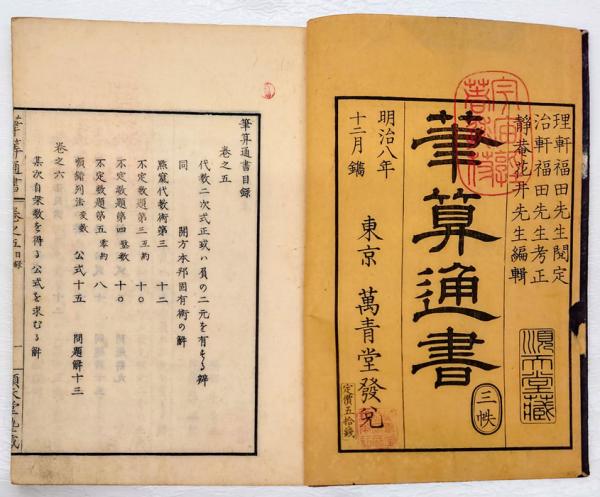 理軒福田先生閲定
治軒福田先生考正
静庵花井先生編輯
順天堂藏
筆算通書
三帙
明治八年
十二月鐫
東京 萬青堂發兌
定價五拾錢
筆算通書目録
巻之五
代数二次式正或ハ負の二元を有する辨
同 開方本邦固有術の解
代数術第三 十二
不定数題第三 互約 十〇
不定数題第四 整数 十〇
不定数題第五 零約 八
錯列法変数 公式十五 問題解十三
巻之六
某次自乗数を得る公式を求むる解
筆算通書 巻之五目録 一 順天堂塾蔵